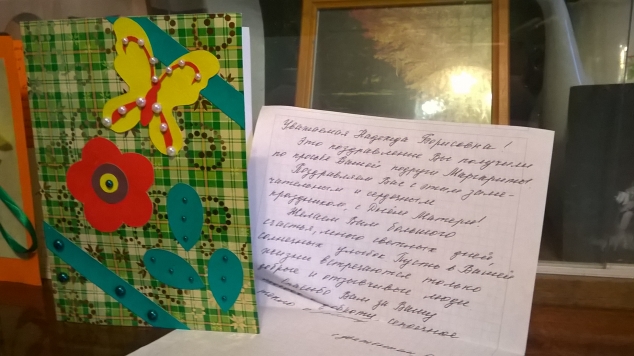 Уважаемая Надежда Борисовна!
Это поздравление Вы получили
по просьбе Вашей подруги Маргариты!
Поздравляем Вас с этим заме-
чательным и сердечным
праздником, с Днём Матери!
Желаем Вам большого
счастья, много светлых дней,
солнечных улыбок. Пусть в Вашей
жизни встречаются только
добрые и отзывчивые люди
Спасибо Вам за Вашу
доброту сердечное